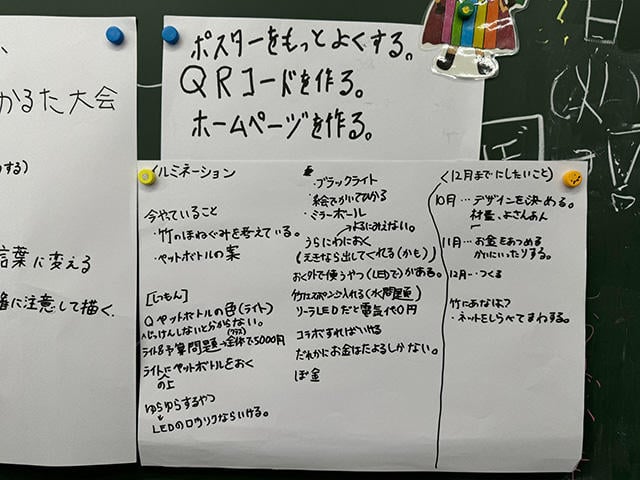 かるた大会
する)
言葉に変える
に注意して描く。
ポスターをもっとよくする。
QRコードを作る。
ホームページを作る。
イルミネーション
今やっていること
・竹のほねぐみを考えている。
・ペットボトルの案
[しつもん]
Qペットボトルの色(ライト)
じっけんしないと分からない。
ライト8予算問題→全体で5000円
ライトにペットボトルをおく
の上
ゆらゆらするやつ
LEDのロウソクならいける。
・ブラックライト
・絵でかいてひかる
・ミラーボール
よるにみえない。
うらにわにおく
(えきなら出してくれる(かも)
おく外で使うやつ(LEDで)がある。
竹にスポンジ入れる(水問題)
ソーラLEDだと電気代0円
コラボすればいける
だれかにお金はたよるしかない。
ぼ金
<12月までにしたいこと>
10月…デザインを決める。
材量、よさんあん
11月…お金をあつめる
かいにいったりする。
12月…つくる
竹にあなは?
・ネットをしらべてまわする。